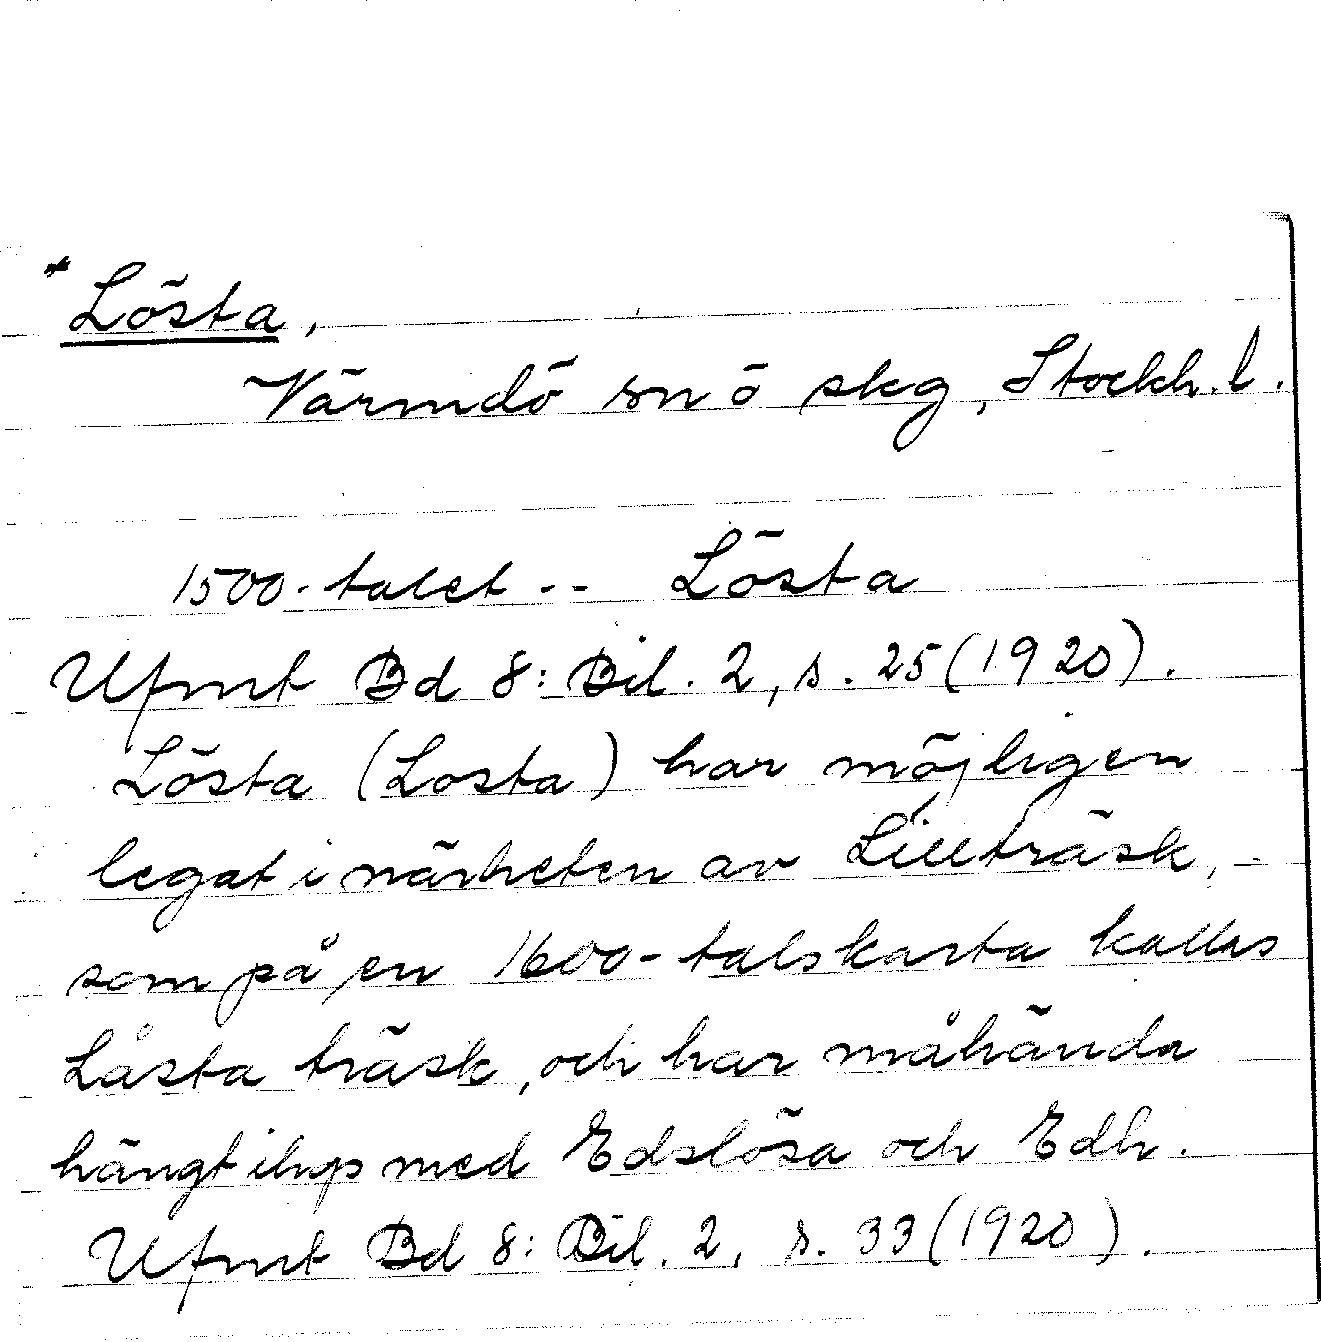 *Lösta,
Värmdö sn ö skg, Stockh. l.
1500-talet -- Lösta
Ufmt Bd 8: Bil. 2, s. 25 (1920).
Lösta (Losta) har möjligen
legat i närheten av Lillträsk,
som på en 1600-talskarta kallas
Låsta träsk, och har måhända
hängt ihop med Edslösa och Edh.
Ufmt Bd 8: Bil. 2, s. 33 (1920).